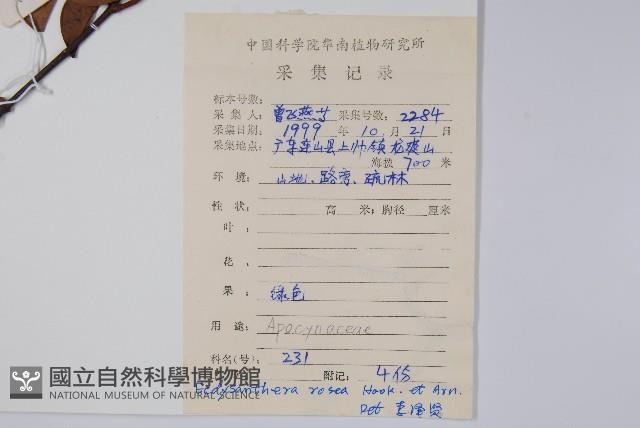 中国科学院华南植物研究所
采集记录
标本号数:
采集人: 曾飞燕等 采集号数: 2284
采集日期: 1999 年 10 月 21 日
采集地点: 广东连山县上帅镇龙须山
海拨 700 米
环境: 山地、路旁、疏林
性状: 高 米; 胸径 厘米
叶:
花:
果: 绿色
用途: Apocynaceae
科名(号): 231
附记: 4份
Ecdysanthera rosea Hook. et Arn.
Det
國立自然科學博物館
NATIONAL MUSEUM OF NATURAL SCIENCE